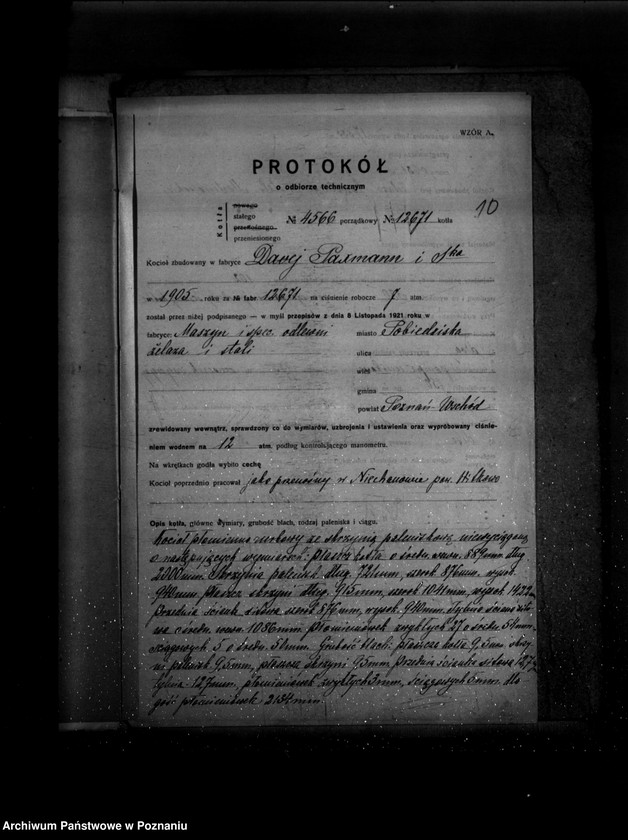 WZÓR A.
PROTOKÓŁ
o odbiorze technicznym
10
Kotła
nowego
stałego
przenośnego
przeniesionego
№ 4566 porządkowy № 12671 kotła
Kocioł zbudowany w fabryce Davej Paxmann i Ska
w 1905 roku za № fabr 12671 na ciśnienie robocze 7 atm.
został przez niżej podpisanego — w myśl przepisów z dnia 8 Listopada 1921 roku w
fabryce: Maszyn i spec. odlewni
żelaza i stali
miasto Pobiedziska
ulica
wieś
gmina
powiat Poznań-Wschód
zrewidowany wewnątrz, sprawdzony co do wymiarów, uzbrojenia i ustawienia oraz wypróbowany ciśnie-
niem wodnem na 12 atm. podług kontrolującego manometru.
Na wkrętkach godła wybito cechę
Kocioł poprzednio pracował jako przenośny w Niechanowie pow.
Opis kotła, główne wymiary, grubość blach, rodzaj paleniska i ciągu.
Kocioł płomienno rurkowy ze skrzynią paleniskową niewyciąganą
o następujących wymiarach: płaszcz kotła o średn. wewn. 889 mm dług
2000 mm. Skrzynia palenisk. dług. 721 mm, szerok 876 mm, wysok.
940 mm, płaszcz skrzyni dług. 915 mm, szerok 1041 mm, wysok. 1422
przednia ścianka sitowa szerok 876 mm, wysok. 940 mm,
wa o średn. wewn. 1086 mm, płomieniówek zwykłych 27 o średn. 54 mm,
ściągowych 5 o średn. 54 mm. Grubość blach: płaszcz kotła 9,5 mm
palenisk 9,5 mm, płaszcza skrzyni 9,5 mm, przednia ścianka sitowa 12,7
tylnia 12,7 mm, płomieniówek zwykłych 3 mm, ściągowych 5 mm. dłu
gość płomieniówek 2134 mm.
Archiwum Państwowe w Poznaniu